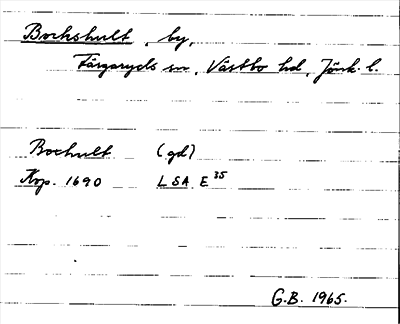 Bockshult, by,
Färgaryds sn, Västbo hd, Jönk. l.
Bochult (gd)
Kop. 1690 LSA E 35
G.B. 1965.